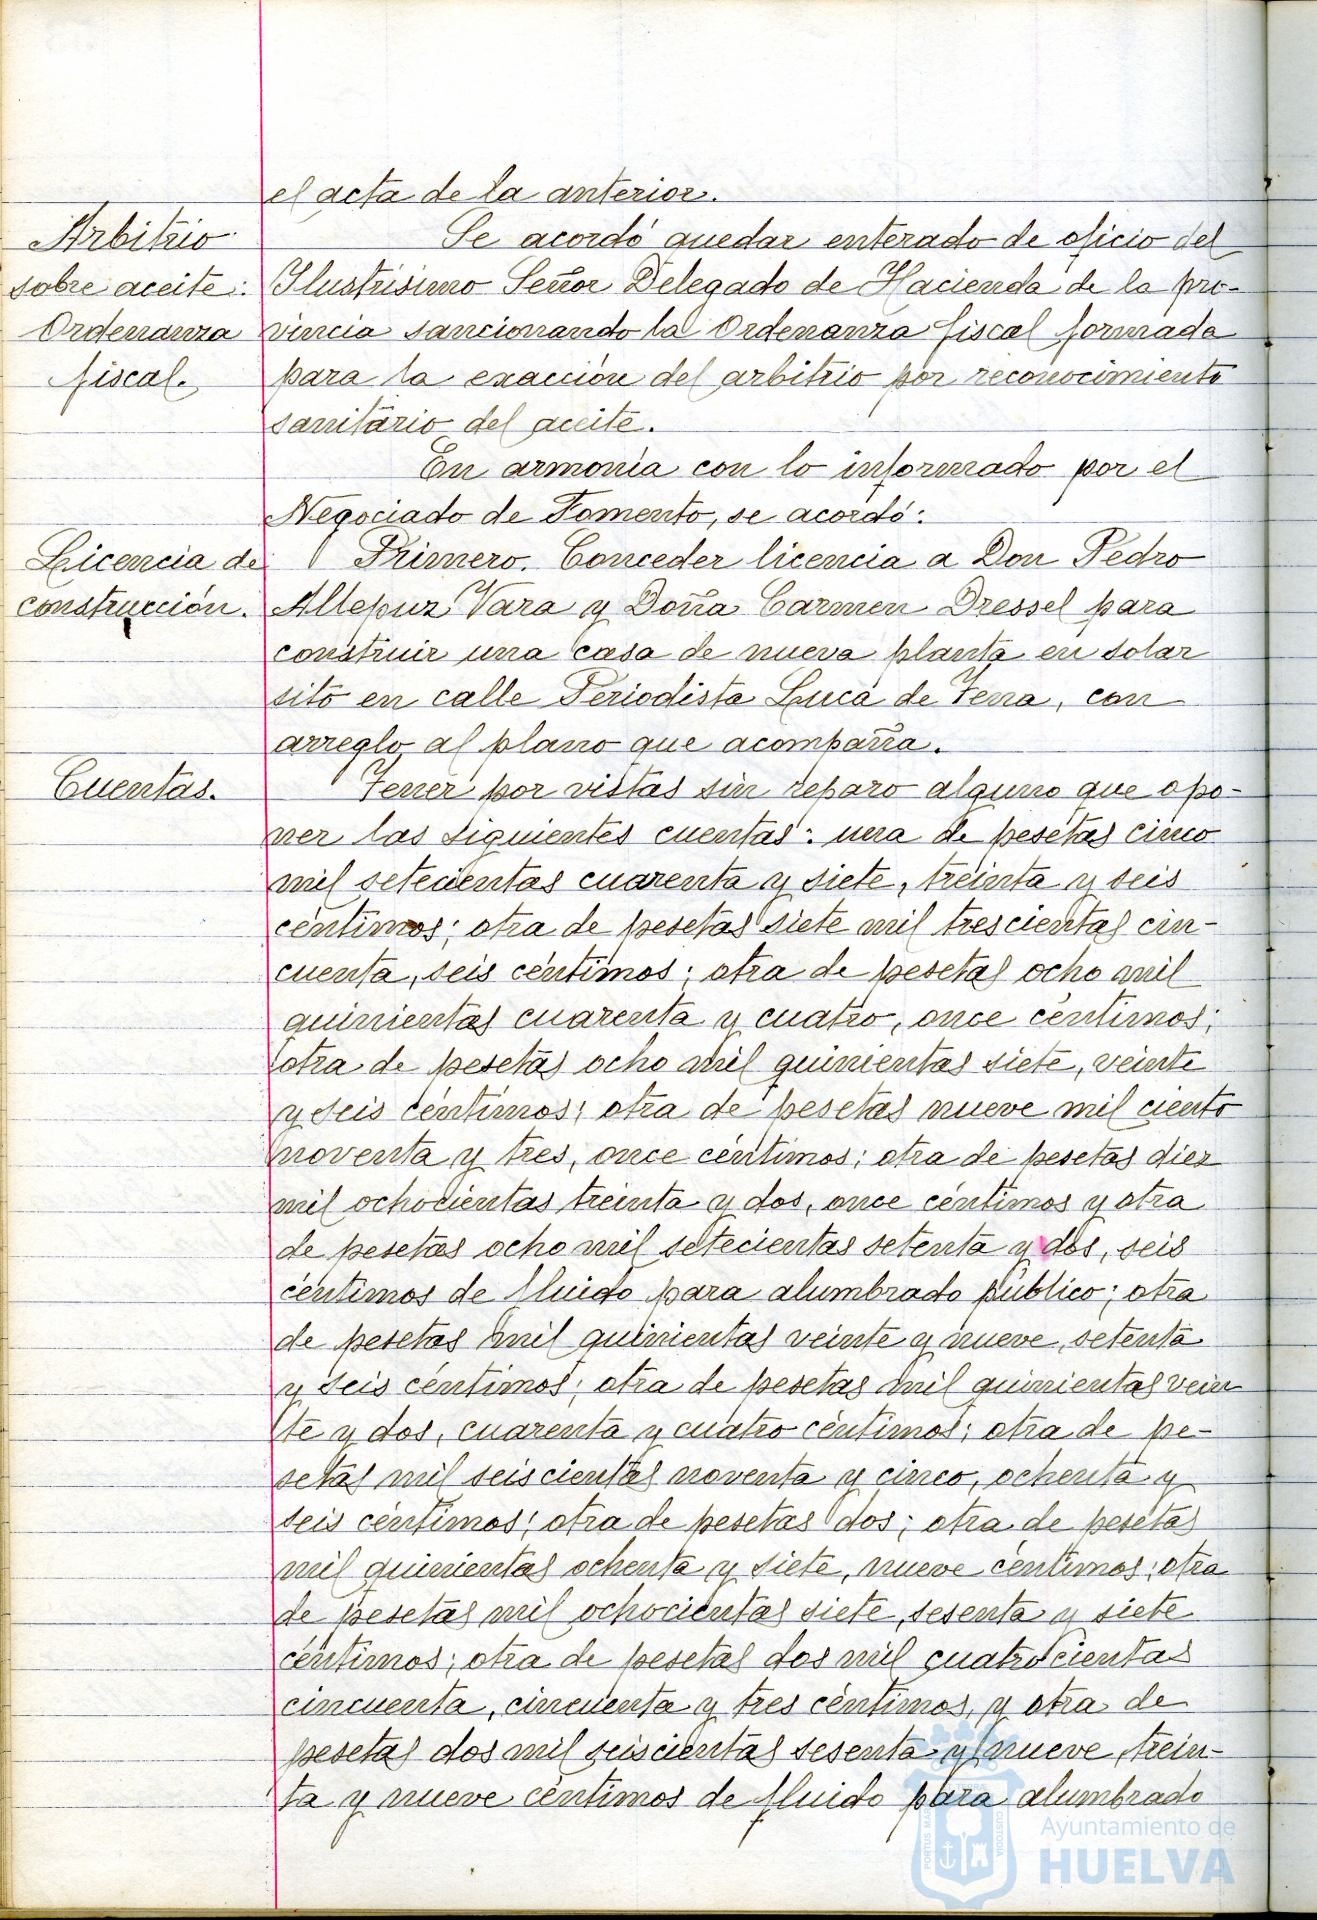 el acta de la anterior.
Arbitrio
sobre aceite:
Ordenanza
fiscal.
Se acordó quedar enterado de oficio del
Ilustrísimo Señor Delegado de Hacienda de la pro-
vincia sancionando la Ordenanza fiscal formada
para la exacción del arbitrio por reconocimiento
sanitario del aceite.
En armonía con lo informado por el
Negociado de Fomento, se acordó:
Licencia de
construcción.
Primero. Conceder licencia a Don Pedro
Allepuz Vara y Doña Carmen Dressel para
construir una casa de nueva planta en solar
sito en calle Periodista Luca de Tena, con
arreglo al plano que acompaña.
Cuentas.
Tener por vistas sin reparo alguno que opo-
ner las siguientes cuentas: una de pesetas cinco
mil setecientas cuarenta y siete, treinta y seis
céntimos; otra de pesetas siete mil trescientas cin-
cuenta, seis céntimos; otra de pesetas ocho mil
quinientas cuarenta y cuatro, once céntimos;
otra de pesetas ocho mil quinientas siete, veinte
y seis céntimos; otra de pesetas nueve mil ciento
noventa y tres, once céntimos; otra de pesetas diez
mil ochocientas treinta y dos, once céntimos y otra
de pesetas ocho mil setecientas setenta y dos, seis
céntimos de fluido para alumbrado público; otra
de pesetas mil quinientas veinte y nueve, setenta
y seis céntimos; otra de pesetas mil quinientas vein
te y dos, cuarenta y cuatro céntimos; otra de pe-
setas mil seiscientas noventa y cinco, ochenta y
seis céntimos; otra de pesetas dos; otra de pesetas
mil quinientas ochenta y siete, nueve céntimos; otra
de pesetas mil ochocientas siete, sesenta y siete
céntimos; otra de pesetas dos mil cuatrocientas
cincuenta, cincuenta y tres céntimos, y otra de
pesetas dos mil seiscientas sesenta y nueve, trein-
ta y nueve céntimos de fluido para alumbrado
PORTUS MARIS ET TERRAE CUSTODIA
Ayuntamiento de
HUELVA